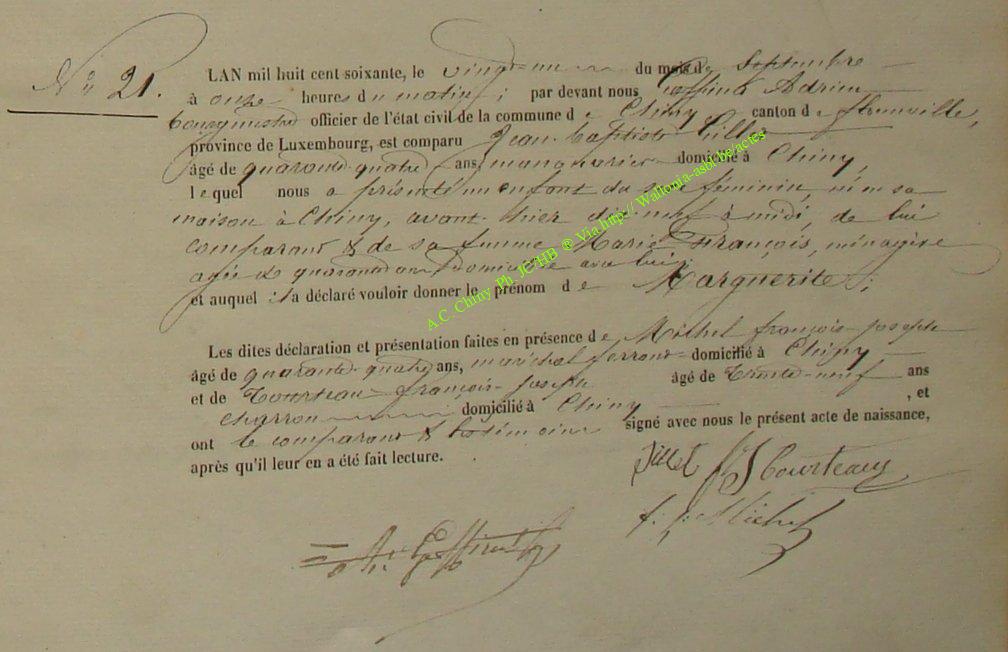 N° 21.
LAN mil huit cent soixante, le vingt-un du mois de Septembre
à onze heures du matin ; par devant nous Adrien
bourgmestre officier de l'état civil de la commune de Chiny canton de florenville,
province de Luxembourg, est comparu Jean-Baptiste Gillet
âgé de quarante-quatre ans, manouvrier domicilié à Chiny,
lequel nous a présenté un enfant du sexe féminin, né en sa
maison à Chiny, avant-hier dix neuf à midi, de lui
comparant & de sa femme Marie François, ménagère
agée de quarante ans domiciliée avec lui ;
et auquel il a déclaré vouloir donner le prénom de Marguerite ;
Les dites déclaration et présentation faites en présence de Michel françois-joseph
âgé de quarante-quatre ans, maréchal ferrant domicilié à Chiny,
et de Courteau françois-joseph âgé de trente-neuf ans
charron domicilié à Chiny , et
ont le comparant & les témoins signé avec nous le présent acte de naissance,
après qu'il leur en a été fait lecture.
Jillet fJ Courteaux
f. j. Michel
A.C. Chiny Ph. JC HB ® Via http:// Wallonia-asbl.be/actes